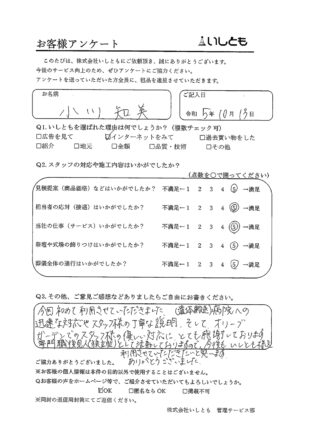 お客様アンケート
いしとも
このたびは、株式会社いしともにご依頼頂き、誠にありがとうございます。
今後のサービス向上のため、ぜひアンケートにご協力ください。
アンケートを送っていただいた方全員に、粗品を進呈させていただきます。
お名前
小川 知美
ご記入日
令和 5年 10月 13日
Q1. いしともを選ばれた理由は何でしょうか?(複数チェック可)
□広告を見て ☑インターネットをみて □過去買い物をした
□紹介 □地元 □金額 □品質・技術 □その他
Q2. スタッフの対応や施工内容はいかがでしたか?
(点数を○で囲ってください)
見積提案(商品価格)などはいかがでしたか? 不満足←1 2 3 4 ⑤ →満足
担当者の応対(接遇)はいかがでしたか? 不満足←1 2 3 4 ⑤ →満足
当社の仕事(サービス)いかがでしたか? 不満足←1 2 3 4 ⑤ →満足
祭壇や式場の飾りつけはいかがでしたか? 不満足←1 2 3 4 ⑤ →満足
葬儀全体の進行はいかがでしたか? 不満足←1 2 3 4 ⑤ →満足
Q3. その他、ご意見ご感想などありましたらご自由にお書きください。
今回初めて利用させていただきました。 病院への
迅速な対応やスタッフ様の丁寧な説明、そして オリーブ
ガーデンでのスタッフ様の優しい対応に とても感謝しております
専門職後見人 として活動しておりますので、今後も いしとも様を
利用させていただきたいと思います
ありがとうございました
ご協力ありがとうございました。
※お客様の個人情報は本件の目的以外で使用することはございません。
Qお客様の声をホームページ等で、ご紹介させていただいてもよろしいでしょうか。
☑OK □匿名ならOK □掲載不可
※同封の返信用封筒にてご返信ください。
株式会社いしとも 管理サービス部